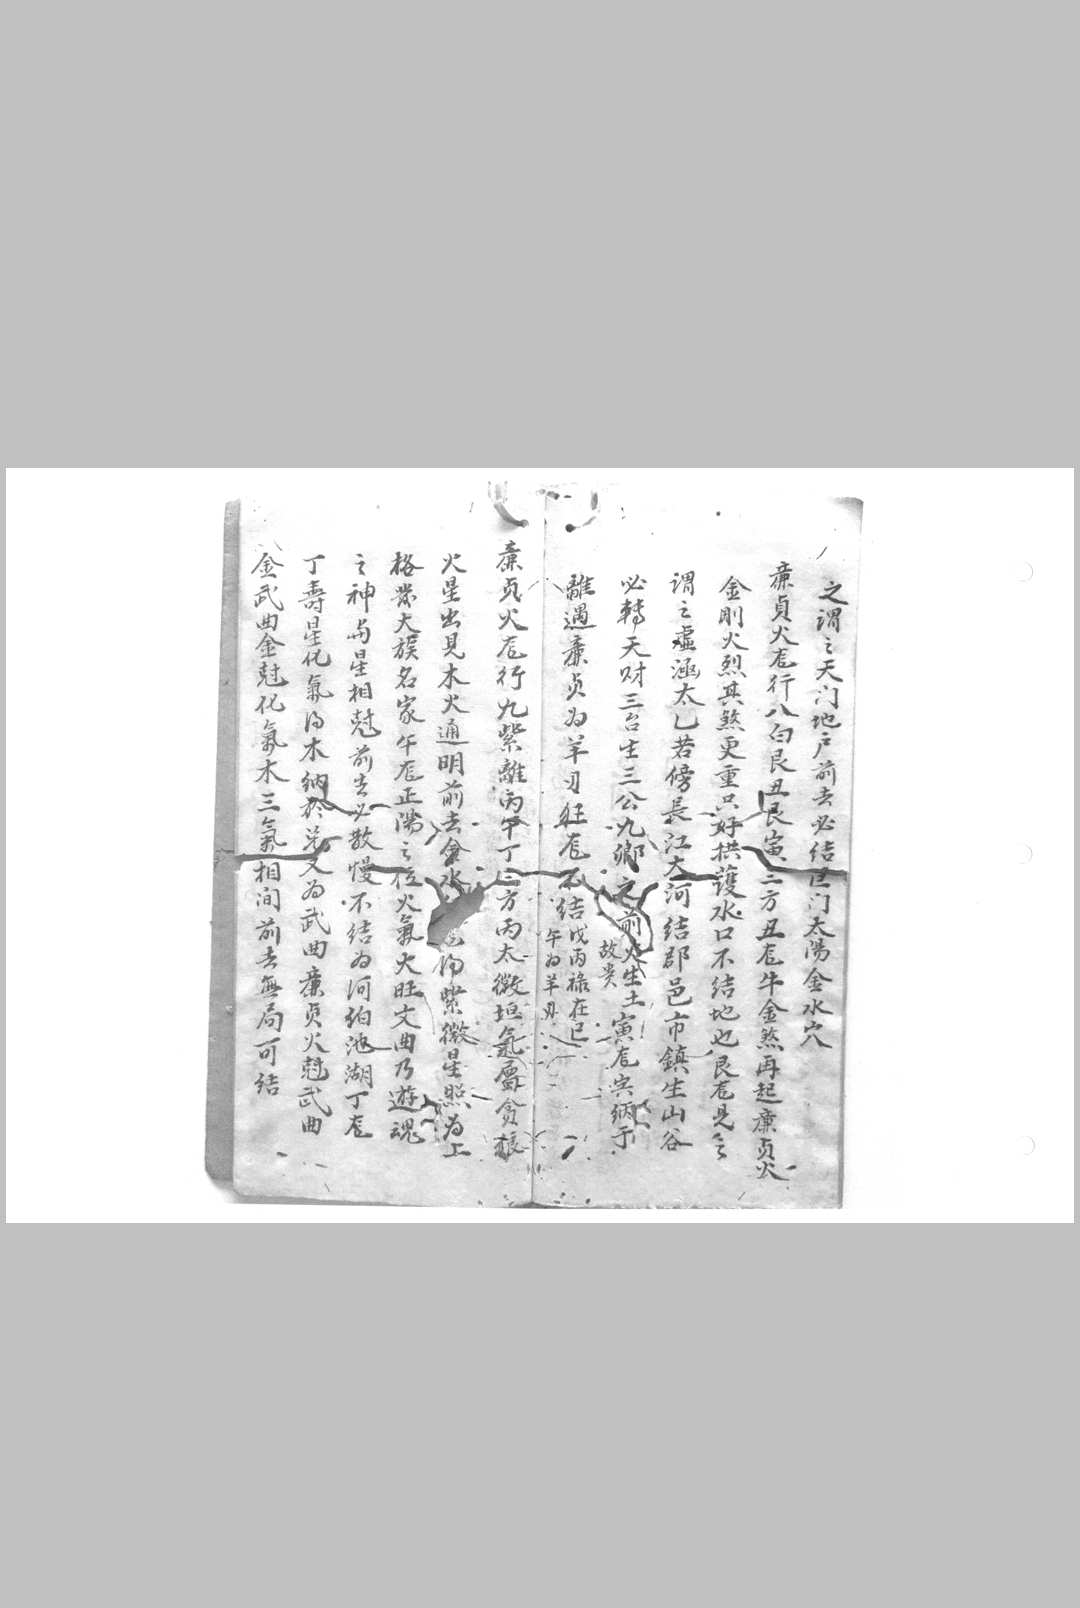 之謂之天门地户前去必结巨门太陽金水穴
廉貞火尨行八白艮丑艮寅三方丑尨牛金煞再起廉貞火
金剛火烈其煞更重只好拱護水口不结地也艮尨見之
謂之虛涵太乙若傍長江大河结郡邑市鎮生山谷
必轉天财三台生三公九卿之前火生土寅尨尖纳于
故贵
離過廉贞为羊刃旺尨不结
戊丙祿在巳
午为羊刃
廉贞火尨行九紫離丙午丁三方丙太微垣氣層貪狼
火星出見木火通明前去金水得紫微星照为上
格發大族名家午尨正陽之位火氣大旺文曲乃遊魂
之神与星相尅前去必散慢不结为河泊池湖丁尨
丁壽星化氣為木纳於兑又为武曲廉貞火尅武曲
金武曲金尅化氣木三氣相间前去無局可结